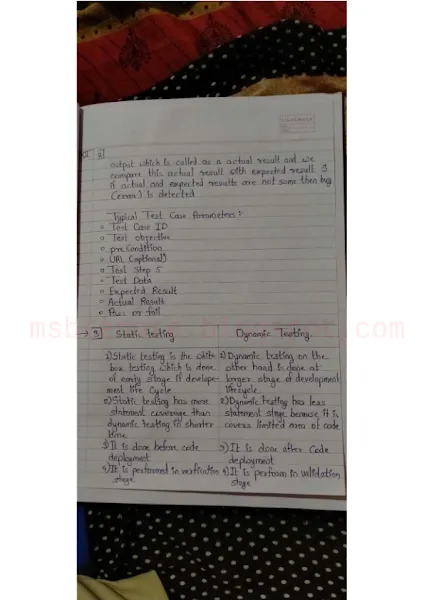 2]
output which is called as a actual result and we
compare this actual result with expected result 3.
if actual and expected results are not same then bug
(error) is detected
Typical Test Case Parameters :
Test Case ID
Test objective
pre Condition
URL (optional)
Test Step s
Test Data
Expected Result
Actual Result
Pass or fail
→ 3] Static testing Dynamic Testing.
1) Static testing is the white 1) Dynamic testing on the
box testing which is done other hand is done at
of early stage of develope- larger stage of development
ment life Cycle lifecycle.
2) Static testing has more 2) Dynamic testing has less
statement coverage than statement stage because it is
dynamic testing in shorter covers limited area of code
time
3) It is done before code 3) It is done after Code
deployment deployment
4) It is performed in verification 4) It is perform in validation
stage. stage